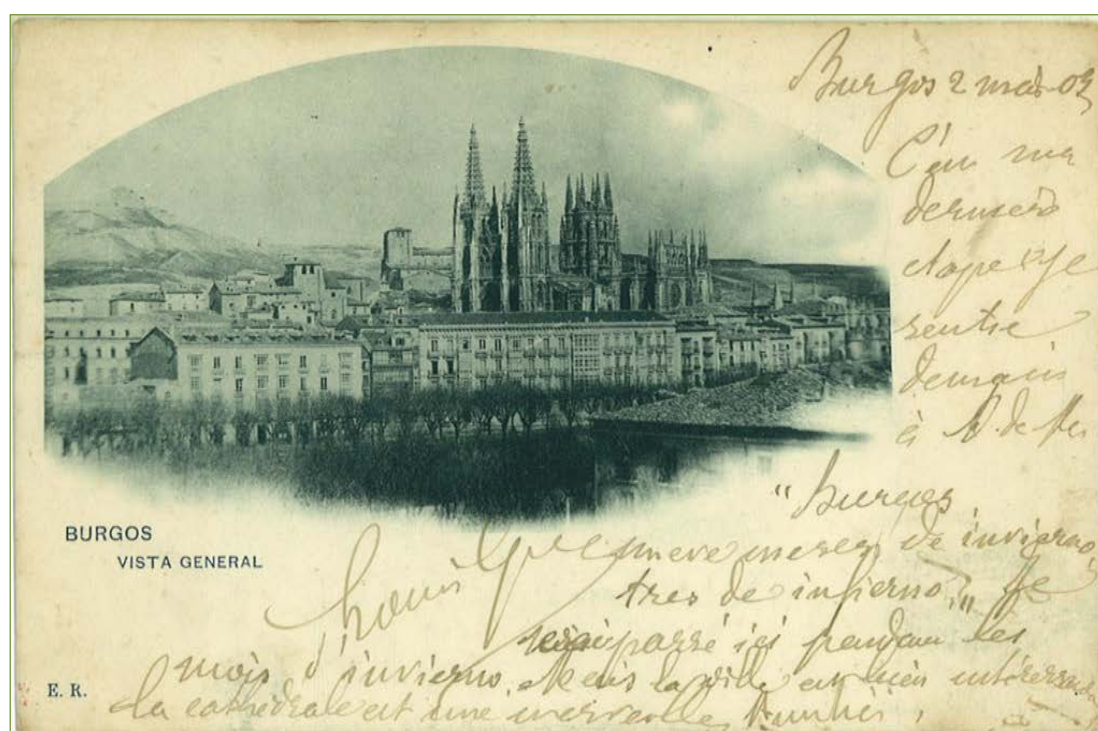 Burgos 2 mars 03
C'est ma
dernière
étape. Je
rentre
demain
à
"Burgos
nueve meses de invierno,
tres de infierno," Je
passé ici pendant les
mois d'invierno. Mais la ville est bien
la cathédrale est une merveille
BURGOS
VISTA GENERAL
Louis
E. R.